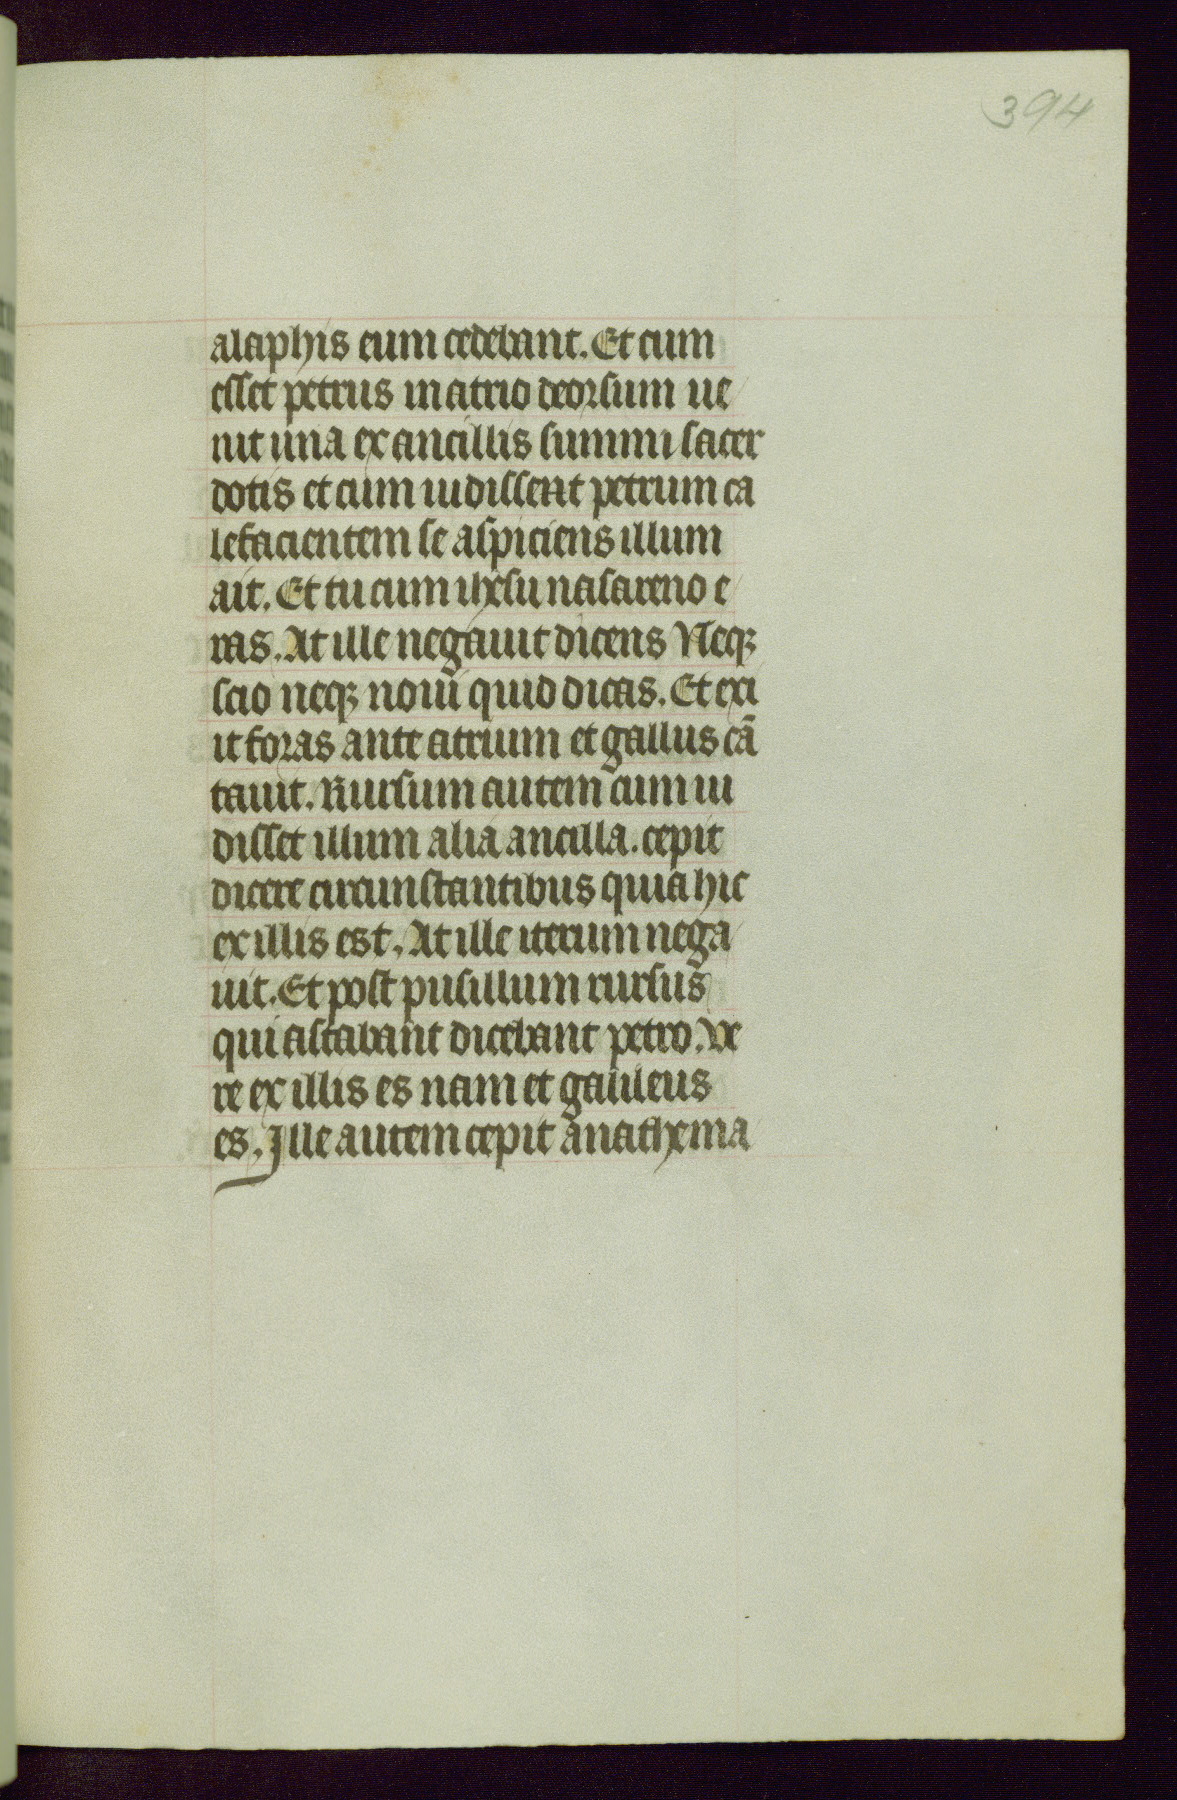 394
alaphis eum cedebant. Et cum
esset petrus in atrio deorsum ue
nit una ex ancillis summi sacer
dotis et cum uidissent petrum ca
lefacientem se aspiciens illum
ait. Et tu cum ihesu nasareno e
ras. At ille negauit dicens Neqꝫ
scio neqꝫ noui quid dicas. Et exi
it foras ante atrium et gallus cā
tauit. Rursum autem cum ui
disset illum alia ancilla. cepit
dicere circunstantibus quia hic
ex illis est. At ille iterum nega
uit. Et post pusillum rursus
qui astabant dicebant petro. Ve
re ex illis es nam et galileus
es. Ille autem cepit anathema